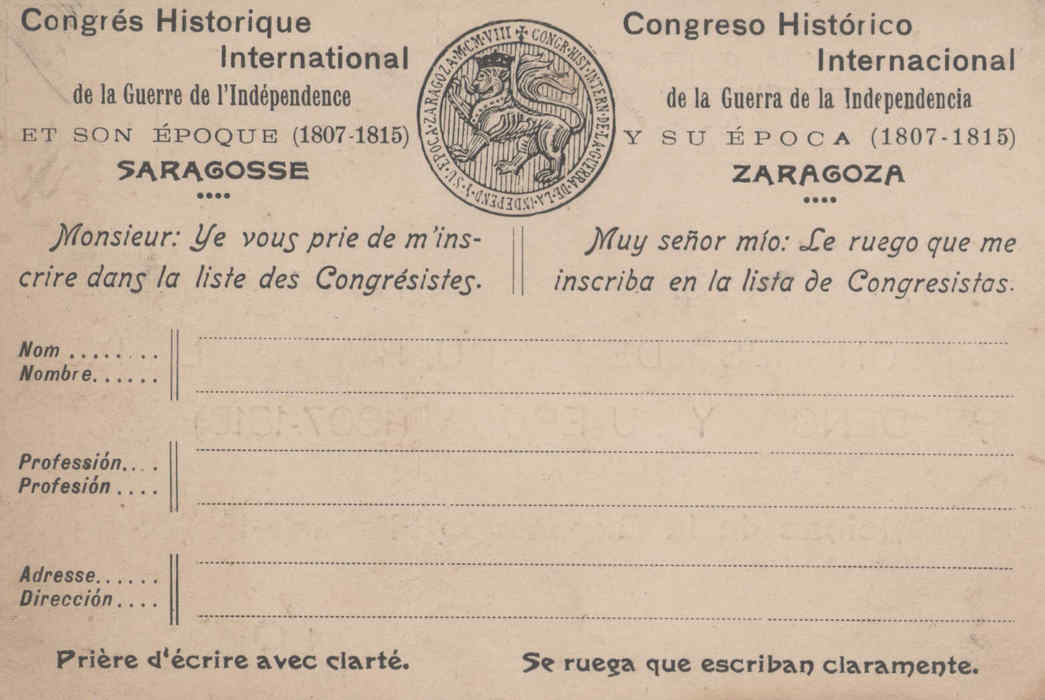 Congrés Historique
International
de la Guerre de l'Indépendence
ET SON ÉPOQUE (1807-1815)
SARAGOSSE
CONGR·HIST·INTERN·DE·LA·GUERRA·DE·LA·INDEPEND·Y·SU·EPOCA·ZARAGOZA·MCM·VIII
Congreso Histórico
Internacional
de la Guerra de la Independencia
Y SU ÉPOCA (1807-1815)
ZARAGOZA
Monsieur: Ye vous prie de m'ins-
crire dans la liste des Congrésistes.
Muy señor mío: Le ruego que me
inscriba en la lista de Congresistas.
Nom ........
Nombre......
Professión....
Profesión ....
Adresse......
Dirección....
Prière d'écrire avec clarté.
Se ruega que escriban claramente.